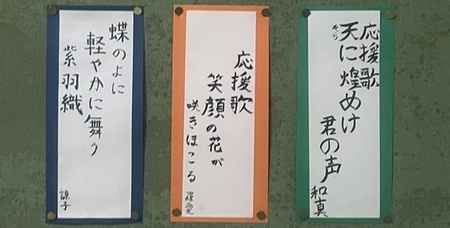 応援歌
天に煌めけ
そら
君の声
和真
応援歌
笑顔の花が
咲きほこる
蝶のよに
軽やかに舞う
紫羽織
諒子